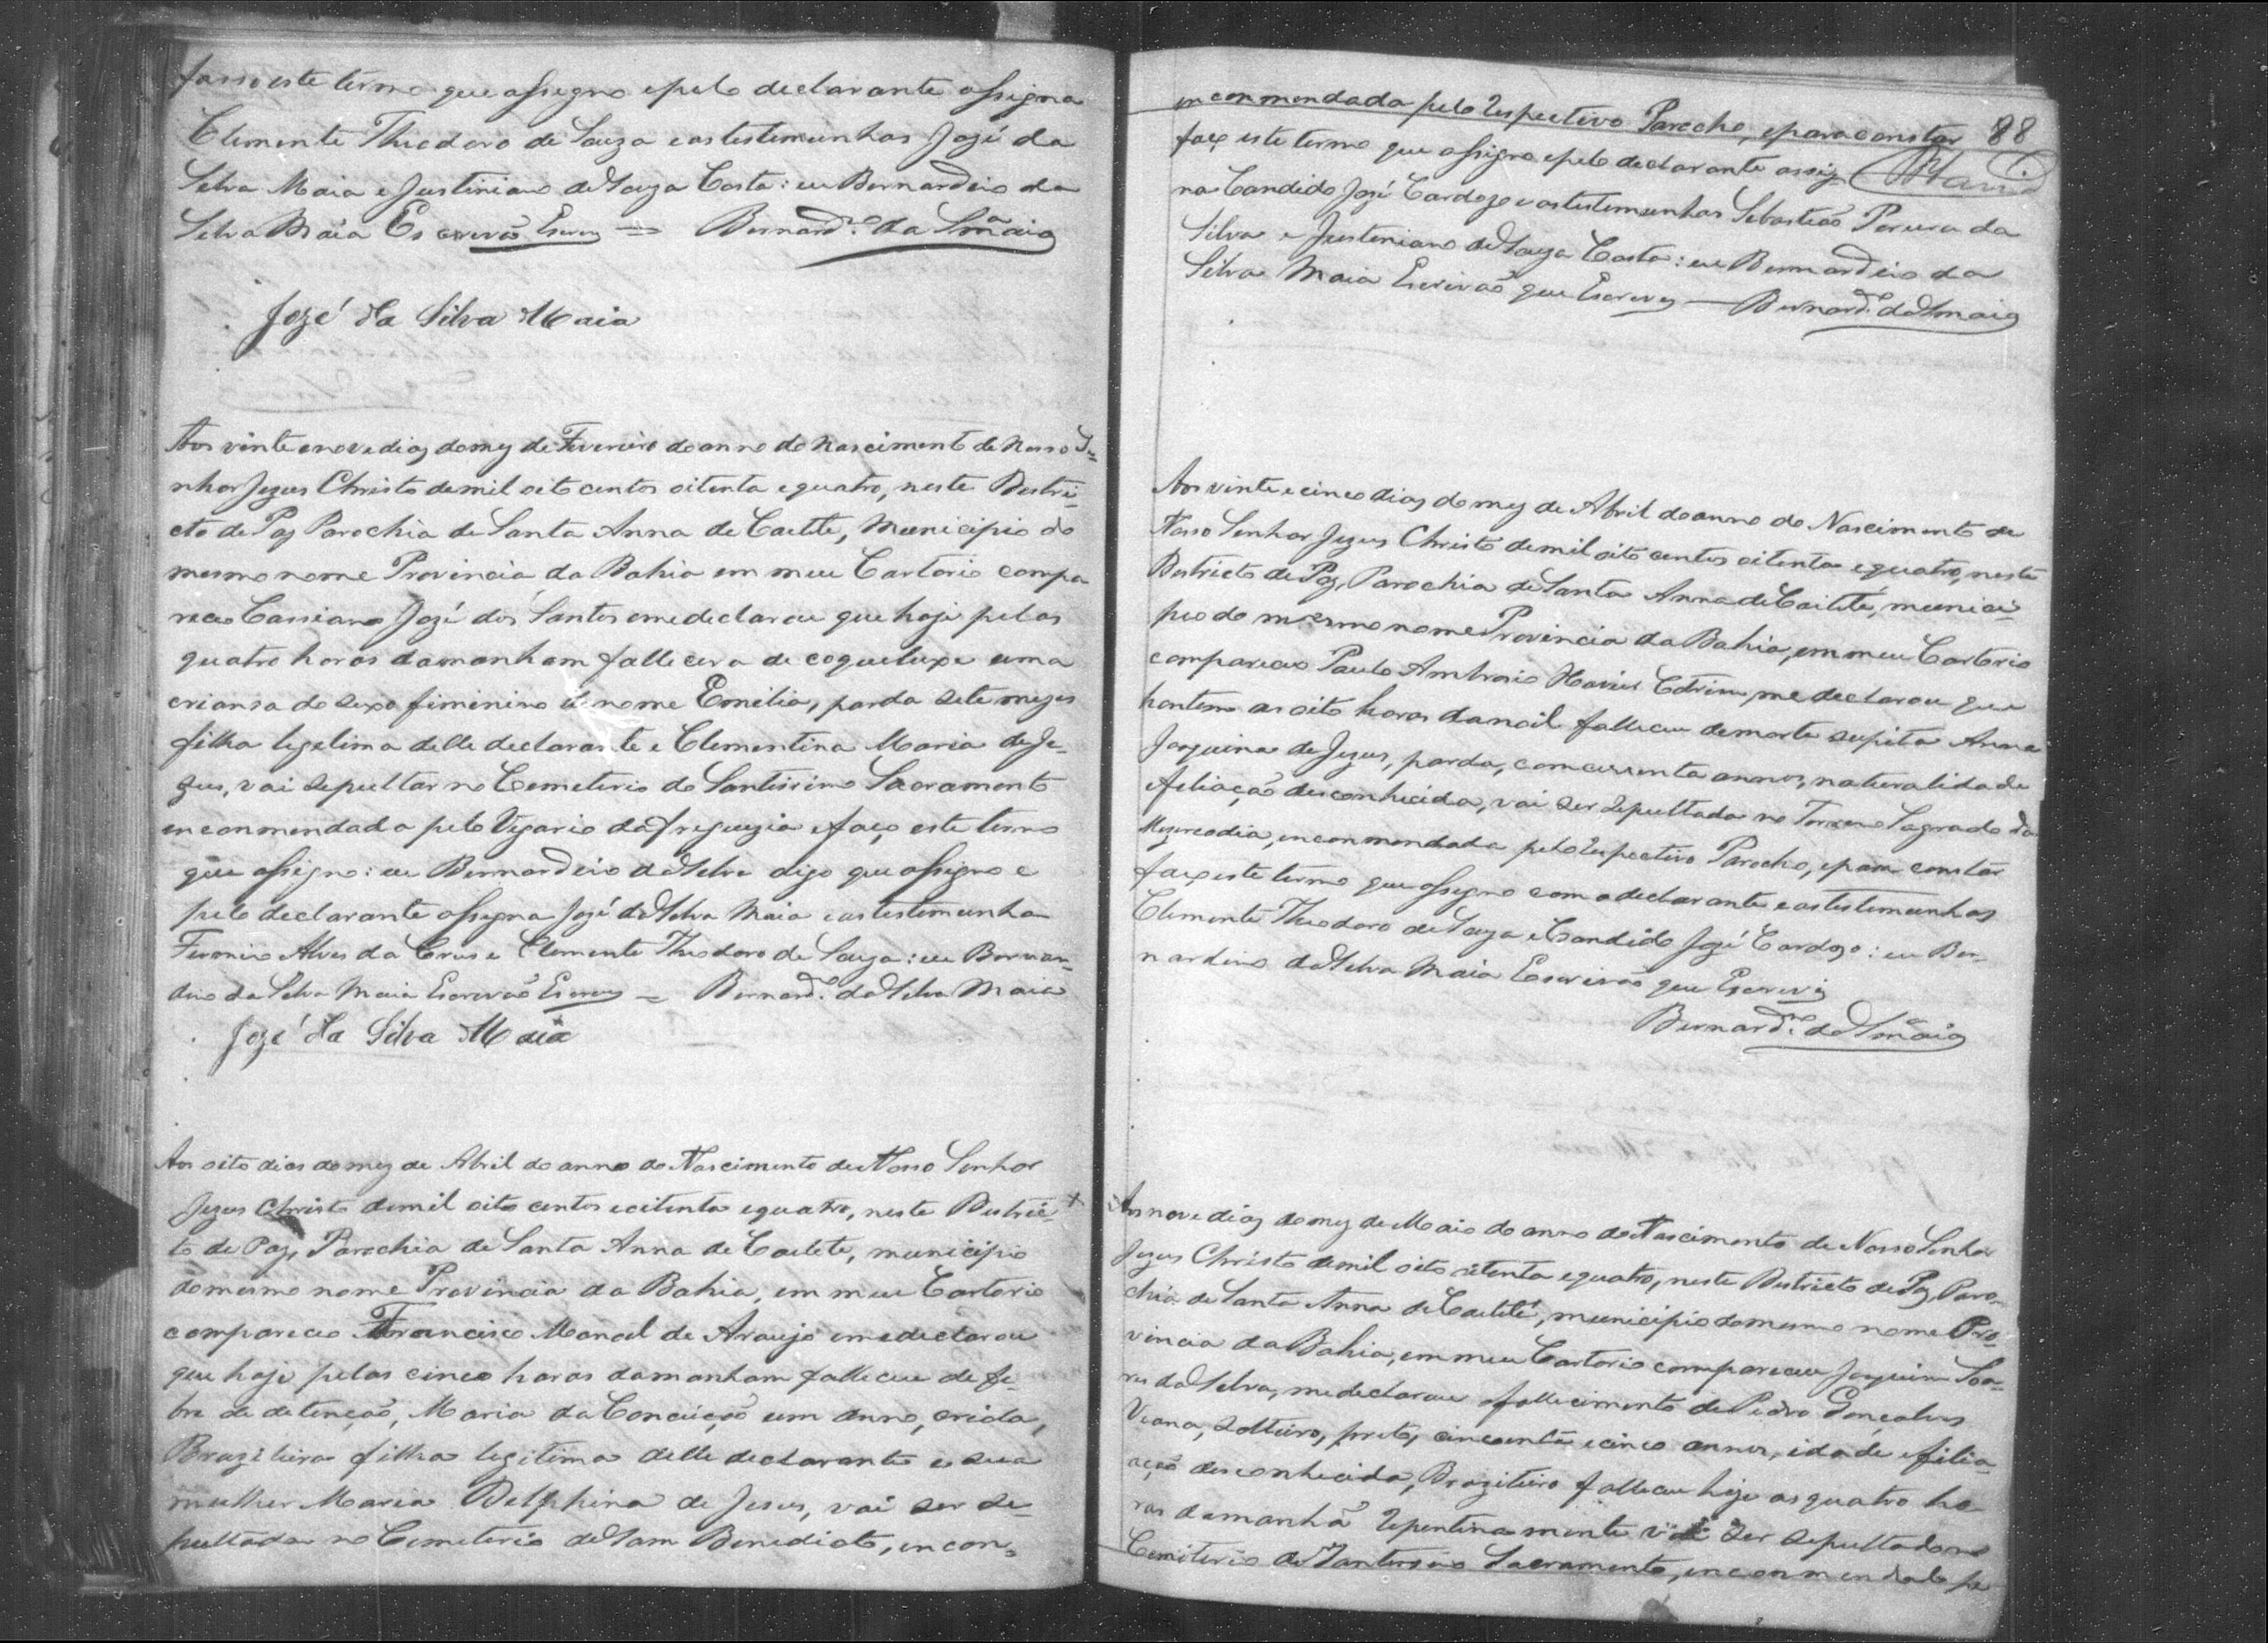 fasso este termo que assigno e pelo declarante assigna
Clemente Theodoro de Souza e as testemunhas Jozé da
Silva Maia e Justiniano de Souza Costa: eu Bernardino da
Silva Maia Escrevão Escrevy = Bernard.no da S.a Maia
Jozé da Silva Maia
Aos vinte e nove dias do mez de Fevereiro do anno do Nascimento de Nosso Se=
nhor Jezus Christo de mil oito centos oitenta e quatro, neste Destri=
cto de Paz Parochia de Santa Anna de Caetite, Municipio do
mesmo nome Provincia da Bahia em meu Cartorio compa
receo Cassiano Jozé dos Santos e me declarou que hoje pelas
quatro horas da manham fallecera de coqueluxe uma
criansa do sexo feminino de nome Emilia, parda sete mezes
filha legetima delle declarante e Clementina Maria de Je=
zus, vai sepultar no Cemeterio do Santissimo Sacramento
enconmendada pelo Vigario da freguezia e faço este termo
que assigno: eu Bernardino da Selva digo que assigno e
pelo declarante assigna Jozé da Selva Maia e as testemunhas
Alves da Crus e Clemente Theodoro de Souza: eu Bernar=
dino da Selva Maia Escrevão Escrevy = Bernard.no da Selva Maia
Jozé da Silva Maia
Aos oito dias do mez de Abril do anno do Nascimento de Nosso Senhor
Jezus Christo de mil oito centos e oitenta e quatro, neste Destric=
to de Paz, Parochia de Santa Anna de Caetete, municipio
do mesmo nome Provincia da Bahia, em meu Cartorio
compareceo Francisco Manoel de Araujo e me declarou
que hoje pelas cinco horas da manham falleceu de fe=
bre de detenção, Maria da Conceição um anno, criola,
Brazileira filha legitima delle declarante e sua
mulher Maria Delphina de Jesus, vai ser se=
pultada no Cemeterio de Sam Benedicto, encon=
enconmendada pelo respectivo Parocho, e para constar 88
faço este termo que assigno e pelo declarante assig Maia
na Candido Jozé Cardozo e as testemunhas Sebastião Pereira da
Silva e Justeniano de Souza Costa: eu Bernardino da
Silva Maia Escrivão que Escrevy — Bernard.no da S.a Maia
Aos vinte e cinco dias do mez de Abril do anno do Nascimento de
Nosso Senhor Jezus Christo de mil oito centos oitenta e quatro, neste
Destricto de Paz, Parochia de Santa Anna de Caitité, munici=
pio do mesmo nome Provincia da Bahia, em meu Cartorio
compareceo Paulo Ambrozio Xavier Cotrim, me declarou que
hontem as oito horas da noite falleceu de morte supita Anna
Joaquina de Jezus, parda, com cincoenta annos, naturalidade
e feliação desconhecida, vai ser sepultada no Terreno Sagrado da
Mizercodia, enconmendada pelo respectivo Parocho, e para constar
faço este termo que assigno com o declarante e as testemunhas
Clemente Theodoro de Souza e Candido Jozé Cardozo: eu Ber=
nardino da Selva Maia Escrivão que Escrevy
Bernard.no da S.a Maia
Aos nove dias do mez de Maio do anno do Nascimento de Nosso Senhor
Jezus Christo de mil oito oitenta e quatro, neste Destricto de Paz, Paro=
chia de Santa Anna de Caitité, municipio do mesmo nome Pro=
vincia da Bahia, em meu Cartorio compareceu Joaquim Soa=
res da Selva, me declarou fallecimento de Pedro Gonçalves
Viana, Solteiro, preto, cincoenta e cinco annos, idade e filia=
ção desconhecida, Brazileiro falleceu hoje as quatro ho=
ras da manhã repentinamente vai ser sepultado no
Cemiterio do Santissimo Sacramento, enconmendado pe